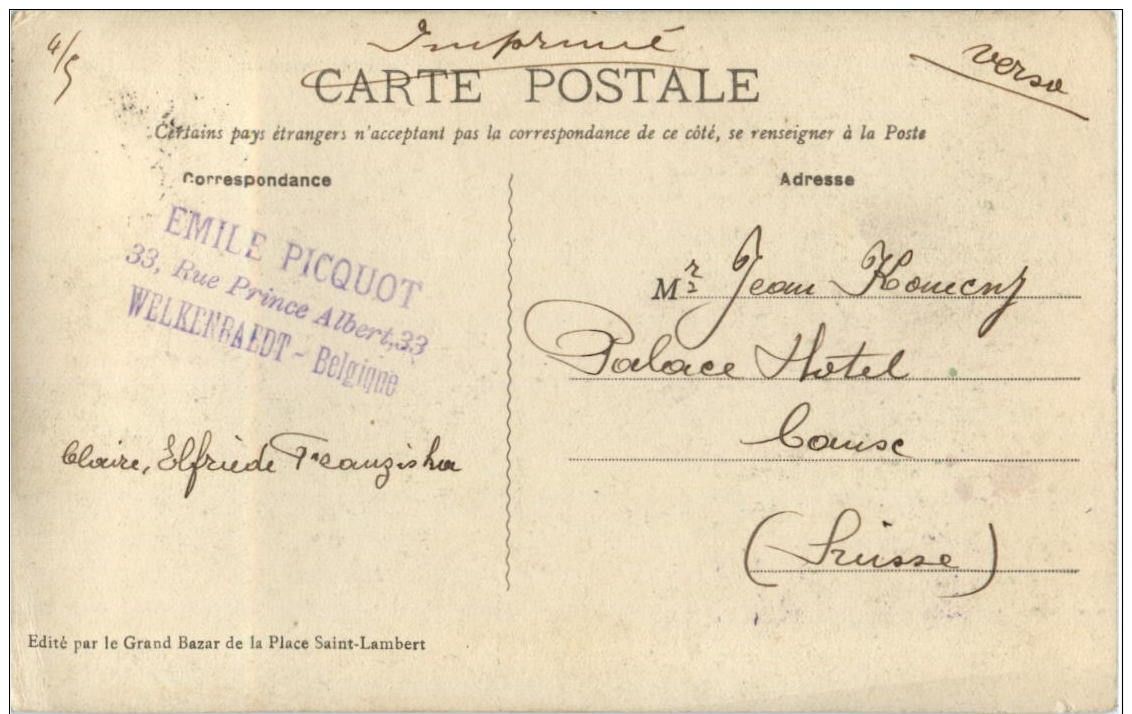 4/5
Imprimé
verso
CARTE POSTALE
Certains pays étrangers n'acceptant pas la correspondance de ce côté, se renseigner à la Poste
Correspondance
EMILE PICQUOT
33, Rue Prince Albert, 33
WELKENRAEDT - Belgique
Claire, Elfriede Franziska
Edité par le Grand Bazar de la Place Saint-Lambert
Adresse
Mr Jean
Palace Hotel
Caux
(Suisse)